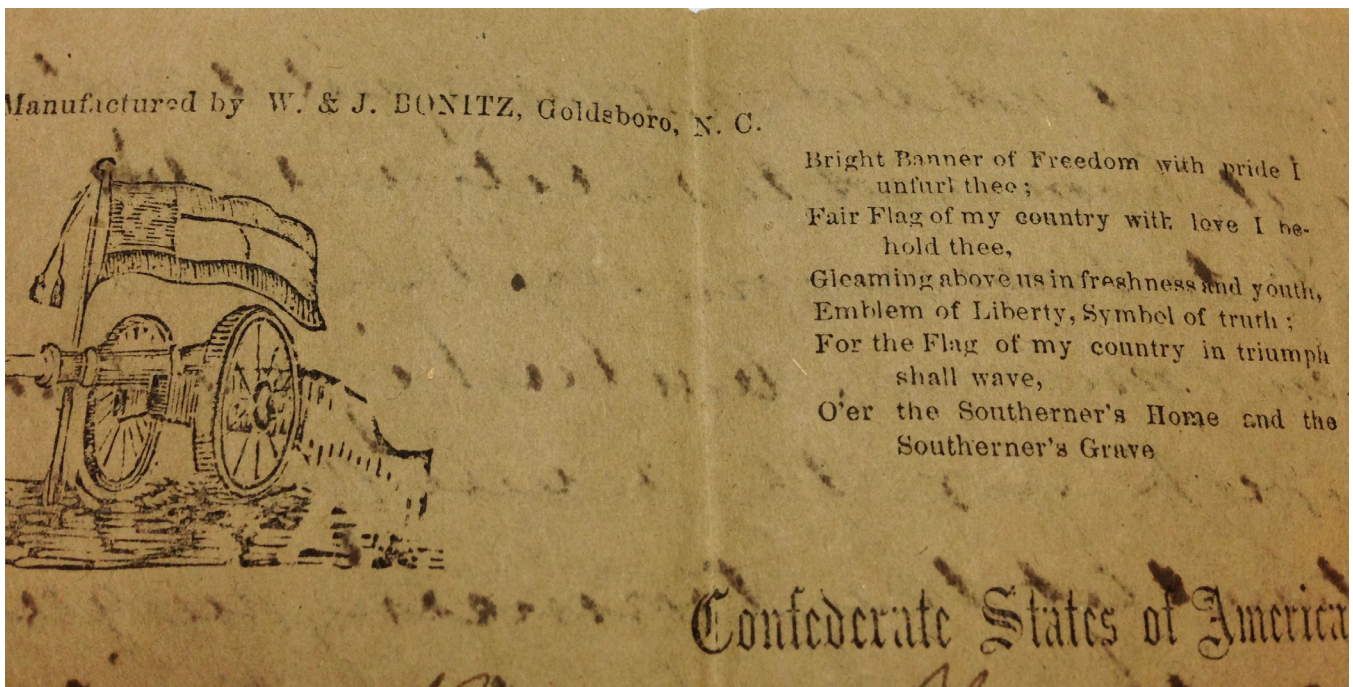 Manufactured by W. & J. BONITZ, Goldsboro, N. C.
Bright Banner of Freedom with pride I
unfurl thee;
Fair Flag of my country with love I be-
hold thee,
Gleaming above us in freshness and youth,
Emblem of Liberty, Symbol of truth;
For the Flag of my country in triumph
shall wave,
O'er the Southerner's Home and the
Southerner's Grave
Confederate States of America